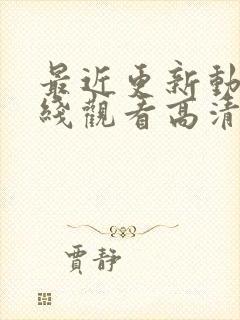 最近更新動
綫觀看高清
賈靜